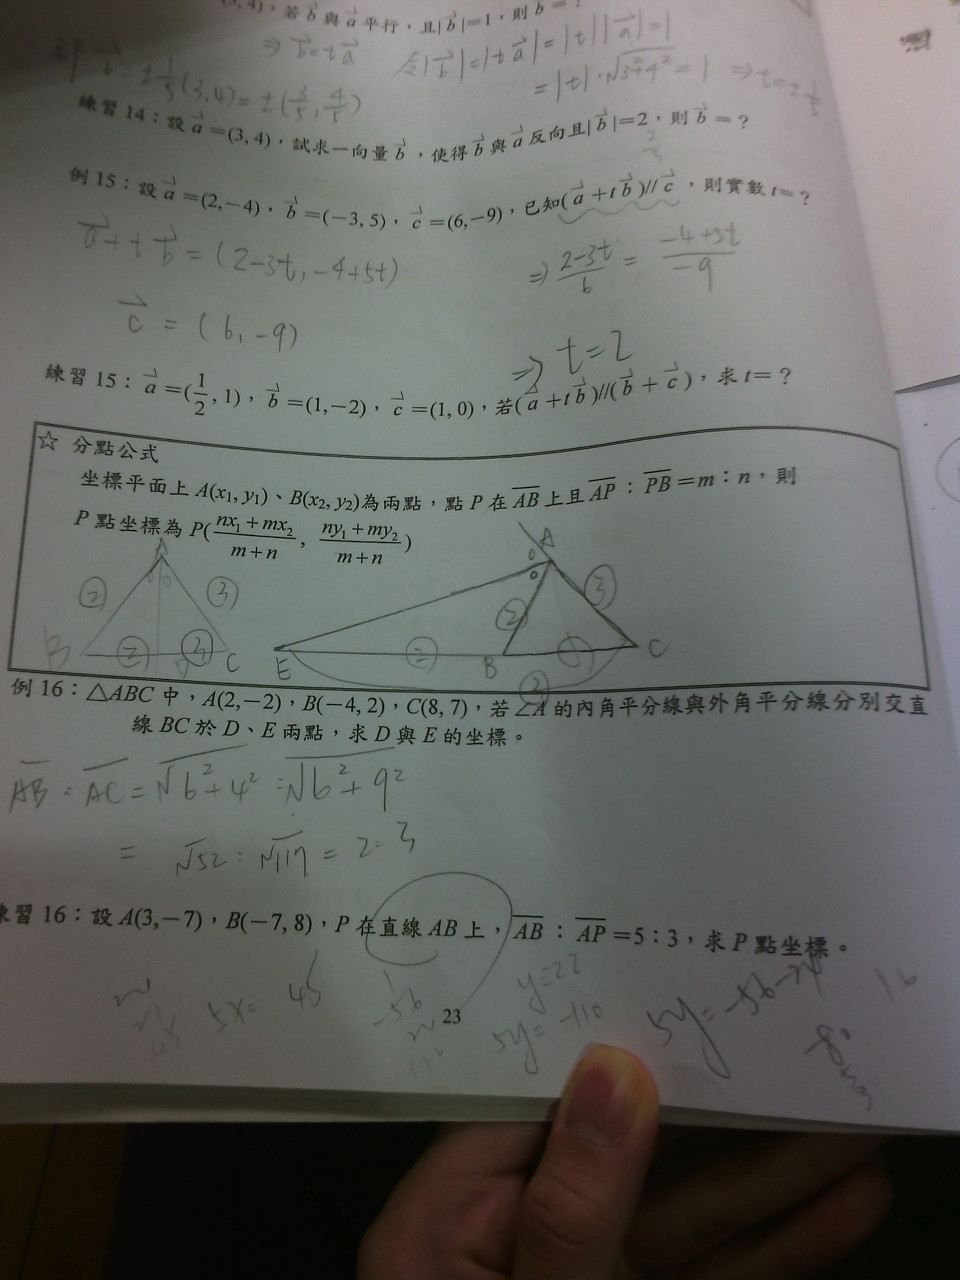 (3, 4)，若 b 與 a 平行，且|b|=1，則 b = ?
⇒ b = ta 令|b| = |ta| = |t||a| = 1
b = ±1/5(3,4) = ±(3/5, 4/5) = |t|·√3²+4² = 1 ⇒ t = ±1/5
練習 14：設 a =(3, 4)，試求一向量 b，使得 b 與 a 反向且|b|=2，則 b = ?
例 15：設 a =(2, −4)，b =(−3, 5)，c =(6, −9)，已知(a + t b)// c，則實數 t= ?
a + t b = (2−3t, −4+5t) ⇒ 2−3t/6 = −4+5t/−9
c = (6, −9)
⇒ t=2
練習 15：a =(1/2, 1)，b =(1, −2)，c =(1, 0)，若(a + t b)//(b + c)，求 t= ?
☆ 分點公式
坐標平面上 A(x₁, y₁)、B(x₂, y₂)為兩點，點 P 在 AB 上且 AP：PB = m：n，則
P 點坐標為 P(nx₁+mx₂/m+n, ny₁+my₂/m+n)
A
② ③
B ② D ③ C
A
② ③
E ② B ① C
③
例 16：△ABC 中，A(2, −2)，B(−4, 2)，C(8, 7)，若∠A 的內角平分線與外角平分線分別交直
線 BC 於 D、E 兩點，求 D 與 E 的坐標。
AB : AC = √6²+4² : √6²+9²
= √52 : √117 = 2:3
練習 16：設 A(3, −7)，B(−7, 8)，P 在直線 AB 上，AB：AP = 5：3，求 P 點坐標。
5x= 45 -56 y=22
5y= -110 5y= -56
23